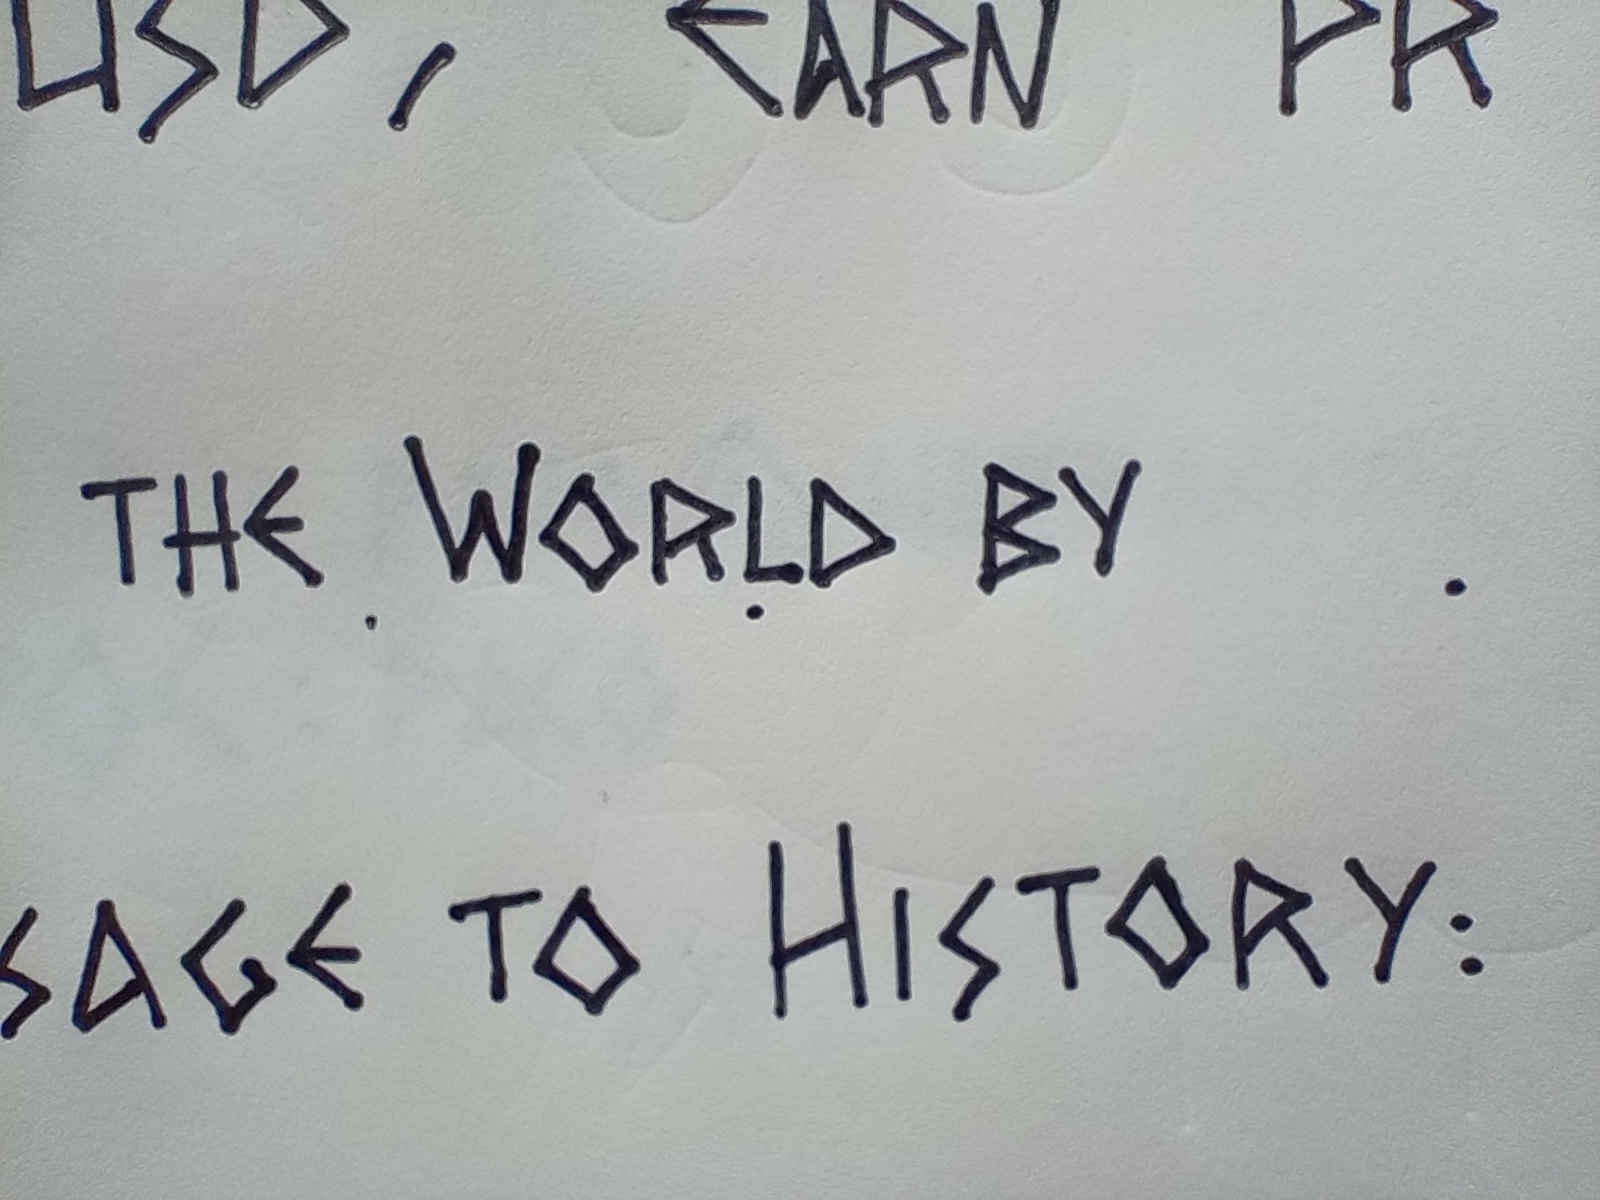 USD, EARN PR
THE WORLD BY .
SAGE TO HISTORY: